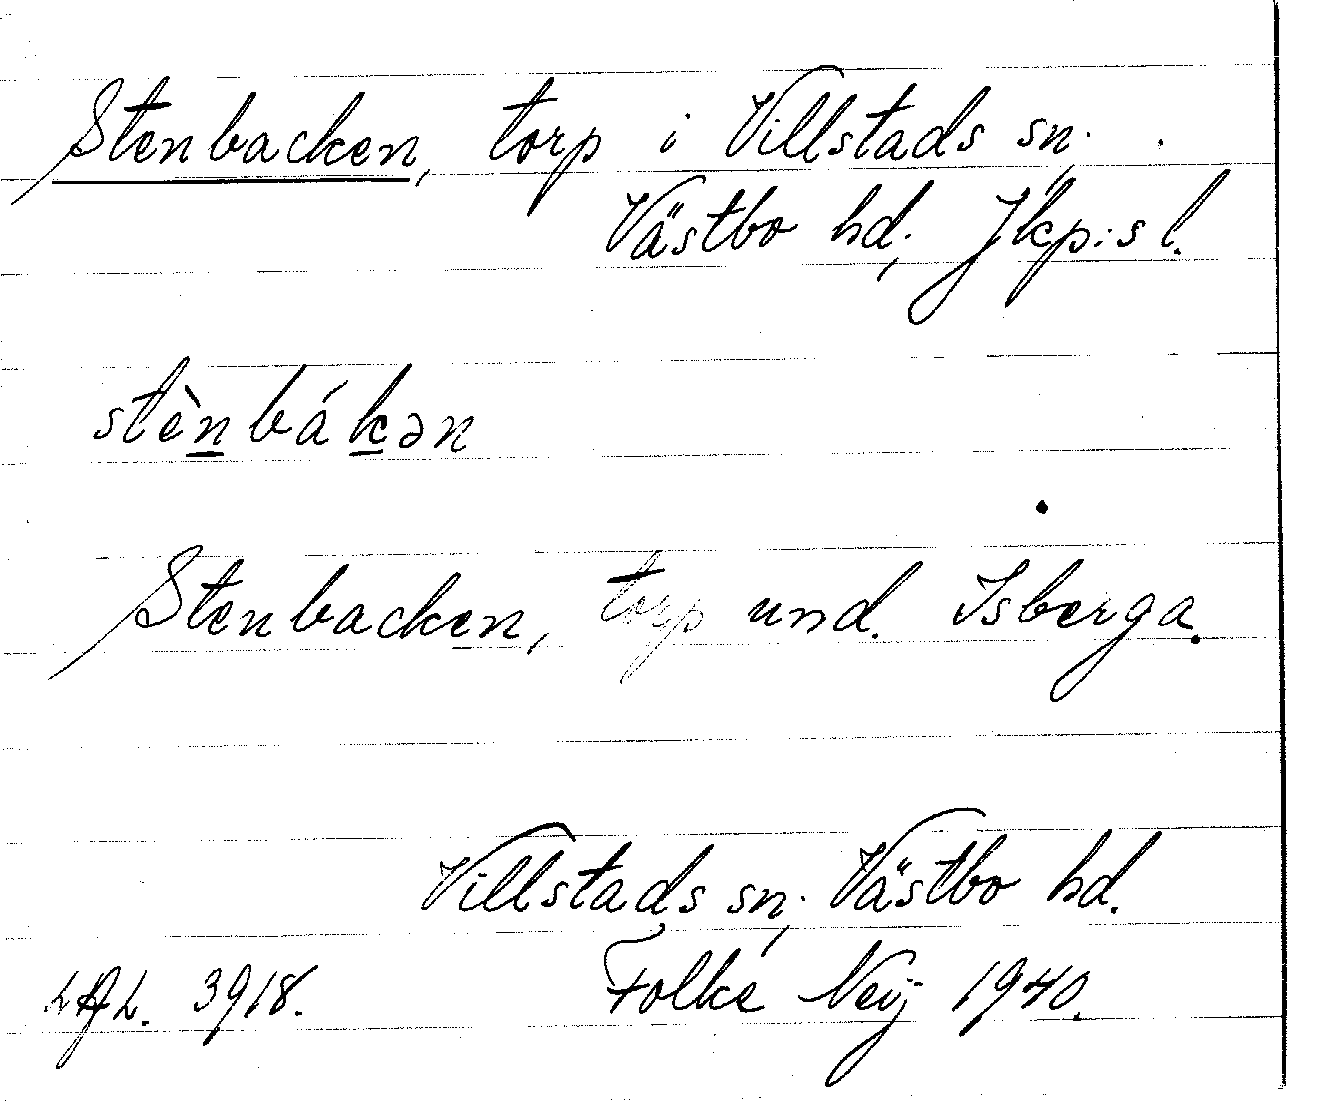 Stenbacken, torp i Villstads sn.
Västbo hd, Jkp:s l.
stènbákən
Stenbacken, torp und. Isberga.
Villstads sn, Västbo hd.
LAL. 3918. Folke Neij 1940.